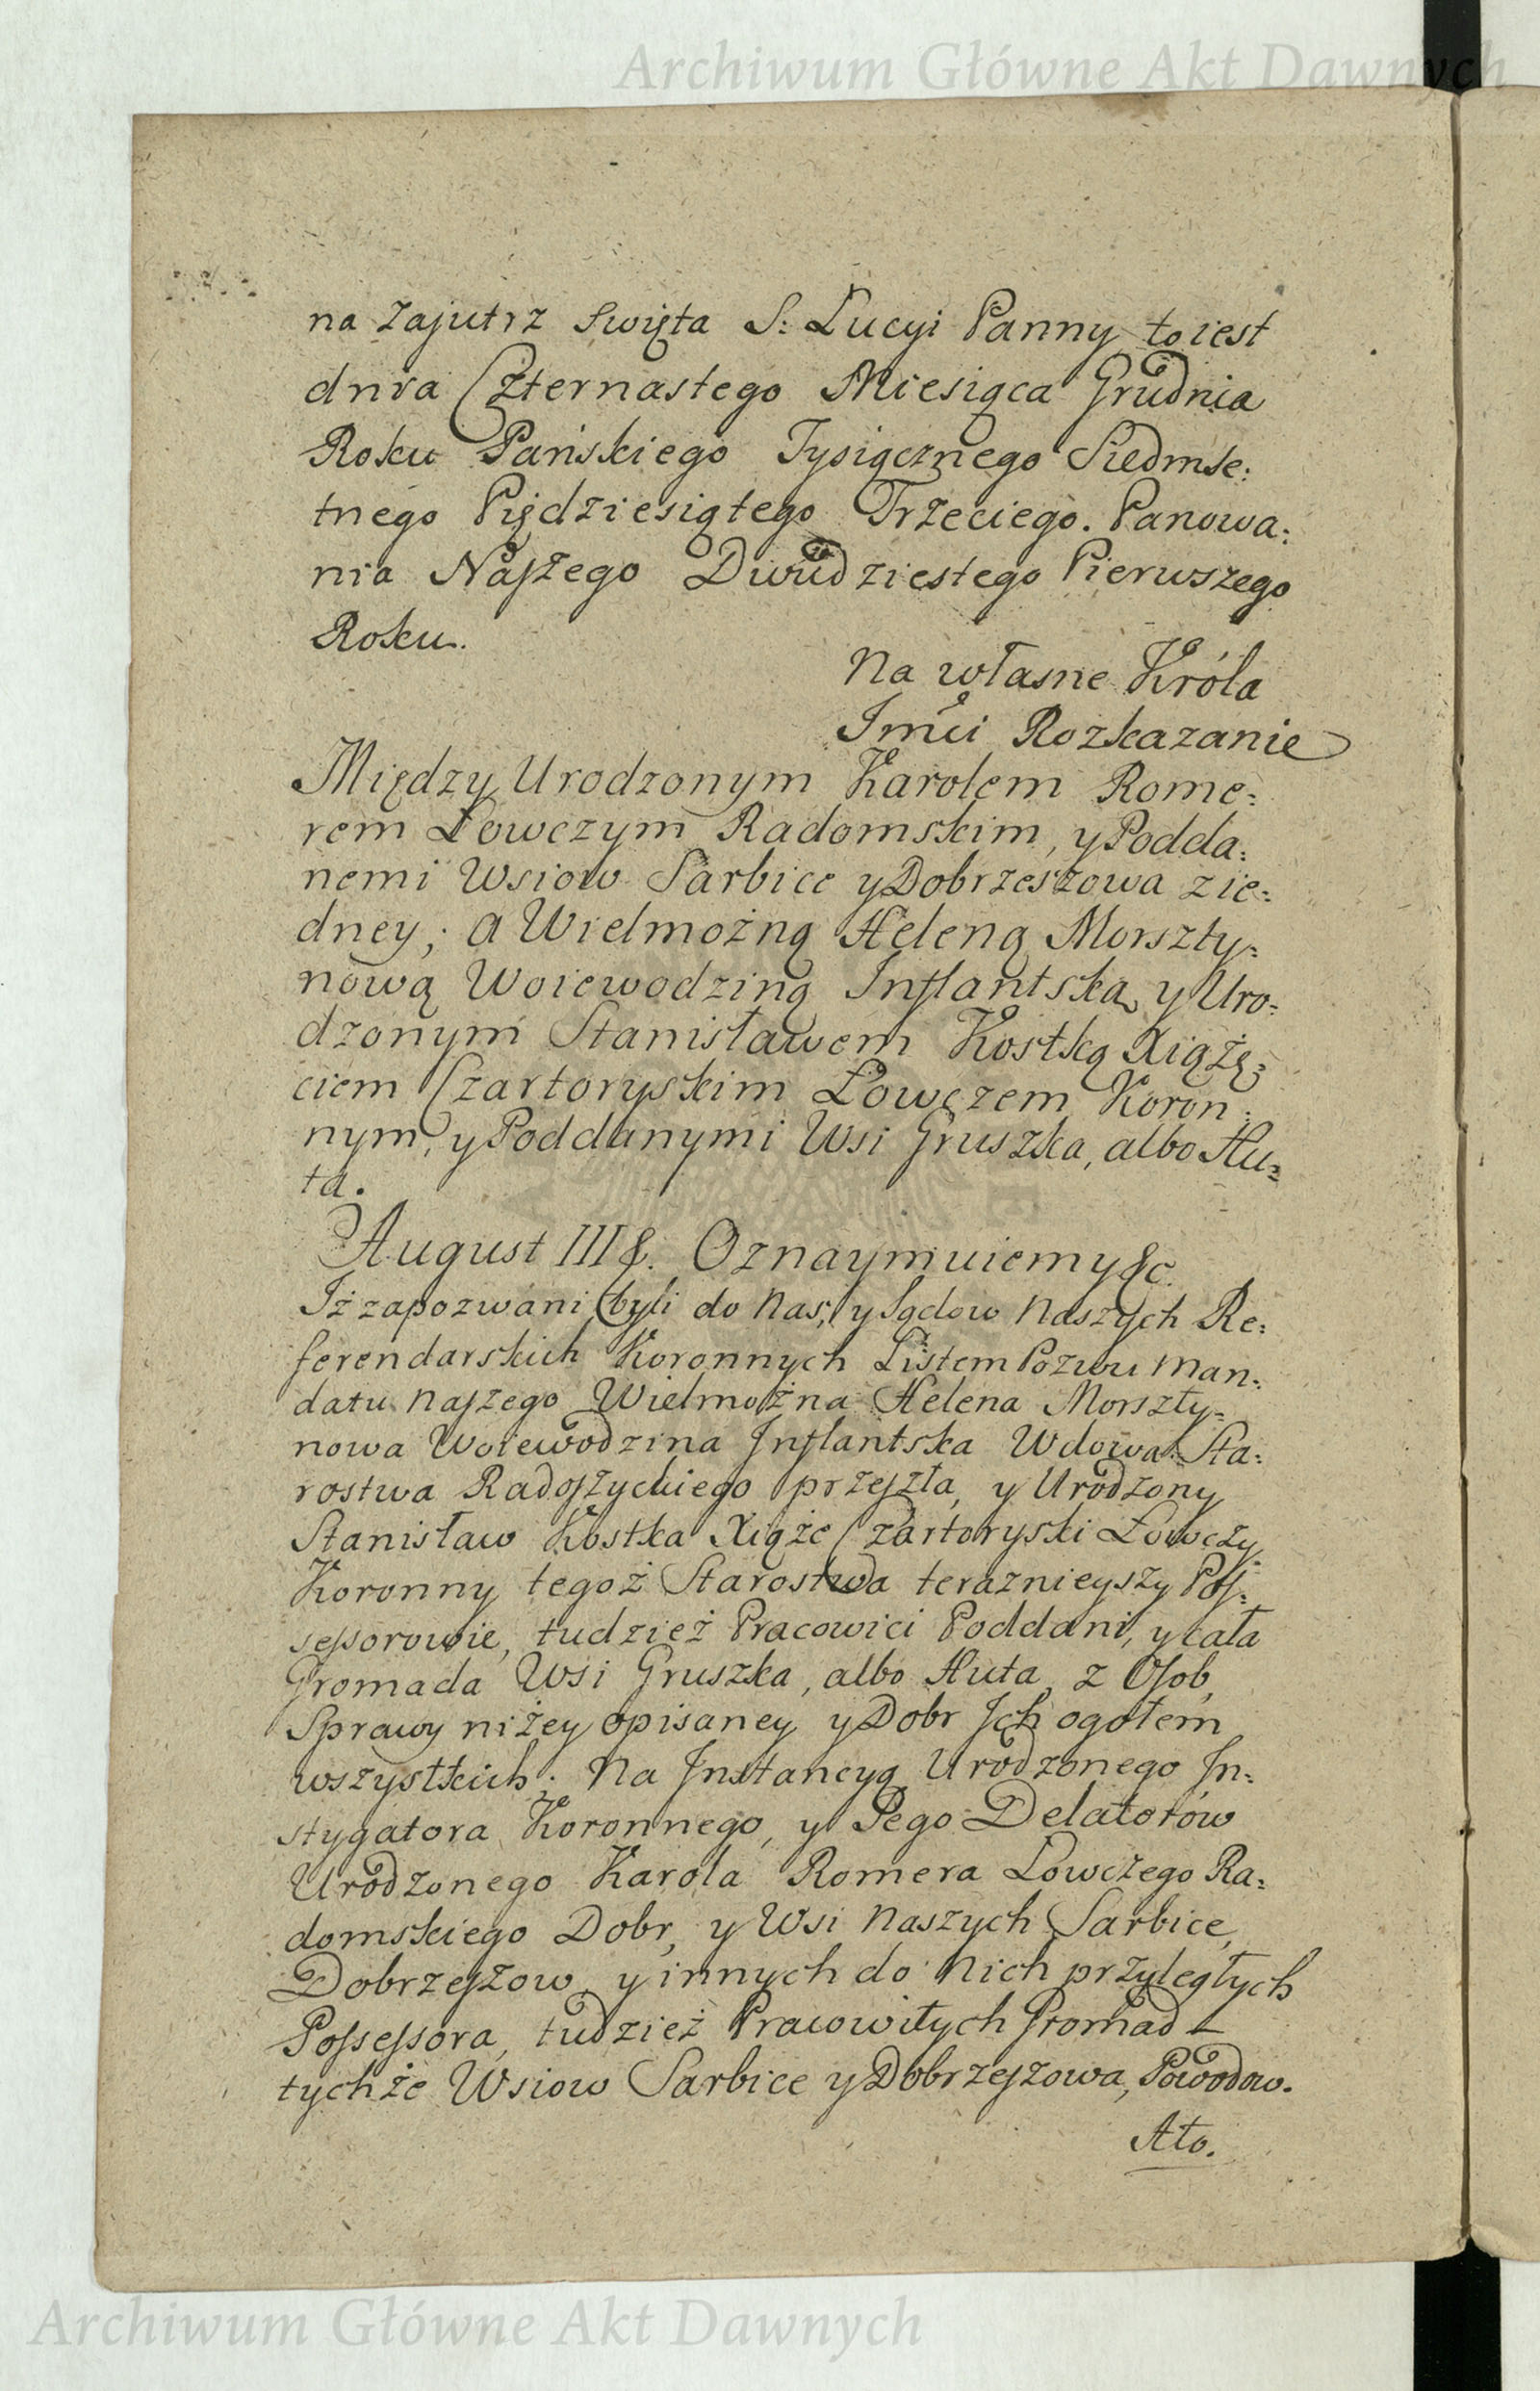 Archiwum Główne Akt Dawnych
na zajutrz Swięta S: Lucyi Panny to iest
dnia Czternastego Miesiąca Grudnia
Roku Pańskiego Tysiącznego Siedmse:
tnego Pięćdziesiątego Trzeciego. Panowa:
nia Naszego Dwudziestego Pierwszego
Roku.
Na własne Króla
Imći Rozkazanie
Między Urodzonym Karolem Rome:
rem Łowczym Radomskim, y Podda:
nemi Wsiow Sarbice y Dobrzeszowa z ie:
dney; a Wielmożną Heleną Morszty:
nową Woiewodziną Inflantską y Uro:
dzonym Stanisławem Kostką Xiążę:
ciem Czartoryskim Łowczem Koron:
nym, y Poddanymi Wsi Gruszka, albo Hu:
ta.
August III &. Oznaymuiemy &c.
Iż zapozwani byli do Nas, y Sądow Naszych Re:
ferendarskich Koronnych Listem Pozwu Man:
datu Naszego Wielmożna Helena Morszty:
nowa Woiewodzina Inflantska Wdowa Sta:
rostwa Radoszyckiego przeszła, y Urodzony
Stanisław Kostka Xiąże Czartoryski Łowczy
Koronny tegoż Starostwa teraznieyszy Pos:
sessorowie, tudzież Pracowici Poddani, y cała
Gromada Wsi Gruszka, albo Huta, z Osob,
Sprawy niżey opisaney y Dobr Ich ogołem
wszystkich. Na Instancyą Urodzonego In:
stygatora Koronnego, y Jego Delatorów
Urodzonego Karola Romera Lowczego Ra:
domskiego Dobr, y Wsi Naszych Sarbice,
Dobrzeszow, y innych do nich przyległych
Possessora, tudzież Pracowitych Gromad
tychże Wsiow Sarbice y Dobrzeszowa, Powodow.
Ato.
Archiwum Główne Akt Dawnych